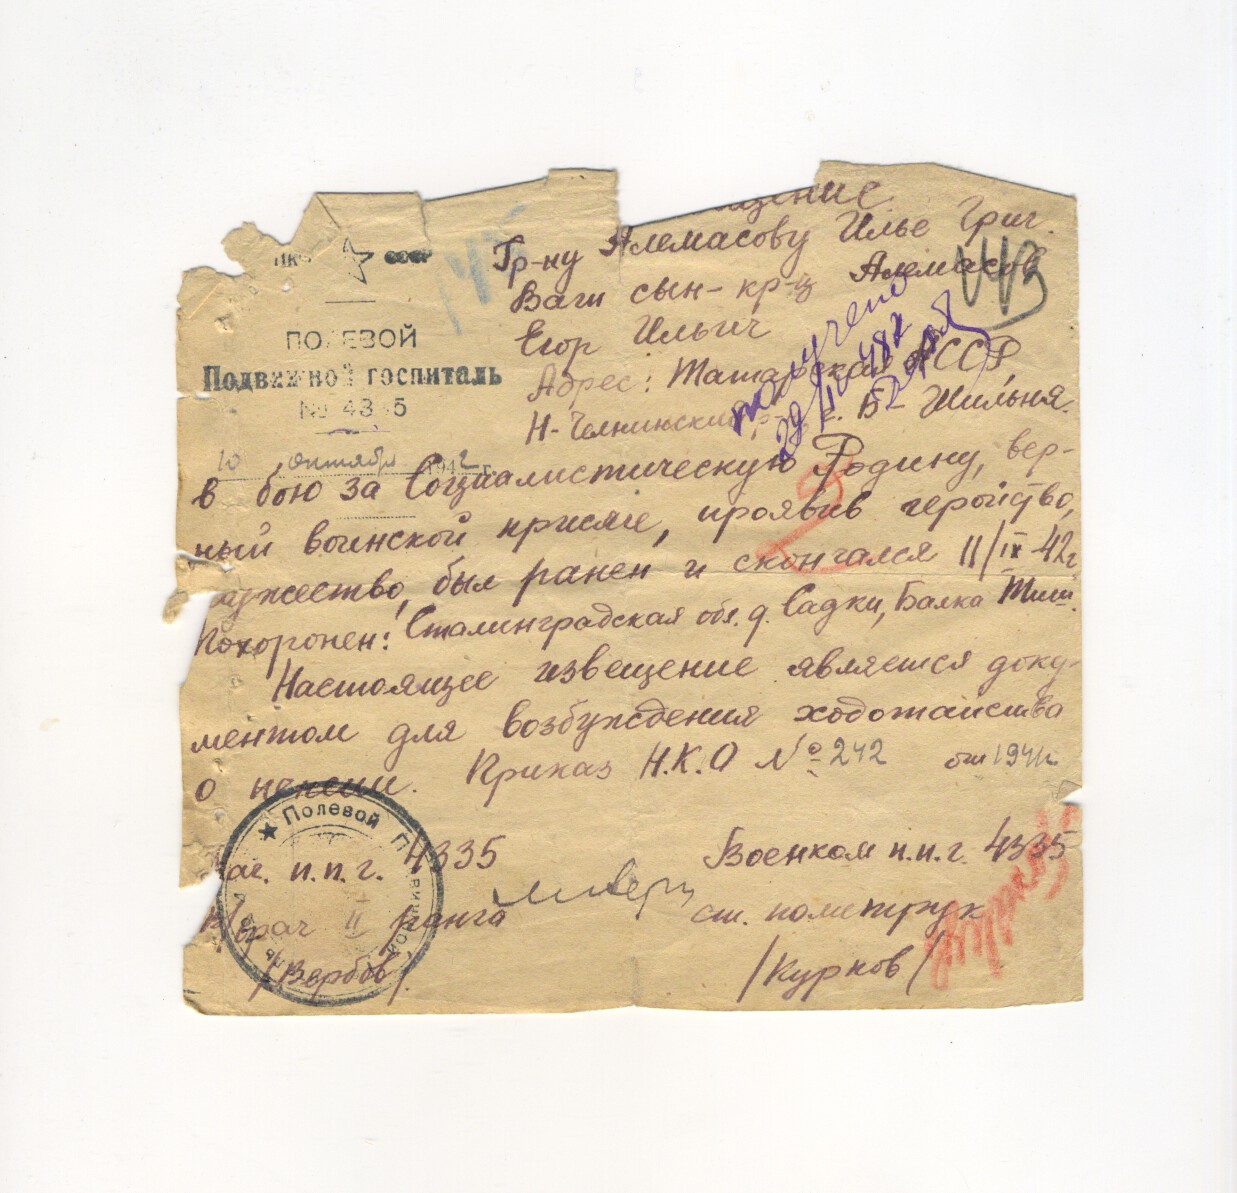 НКО СССР
ПОЛЕВОЙ
Подвижной госпиталь
№ 4335
10 октября 1942 г.
Гр-ну Алемасову Илье Григ.
Ваш сын - кр-ц Алемасов
Егор Ильич
Адрес: Татарская АССР,
Н-Челнинский р-н, с. Б-Шильня.
в бою за Социалистическую Родину, вер-
ный воинской присяге, проявив геройство,
мужество, был ранен и скончался 11/IX-42г
Похоронен: Сталинградская обл. д. Садки, Балка Тиш.
Настоящее извещение является доку-
ментом для возбуждения ходотайства
о пенсии. Приказ Н.К.О № 242 от 1941г
Нач. п.п.г. 4335
в/врач II ранга
/Вербов/.
Военком п.п.г. 4335
ст. политрук
/Курков/
получено
443
★ Полевой